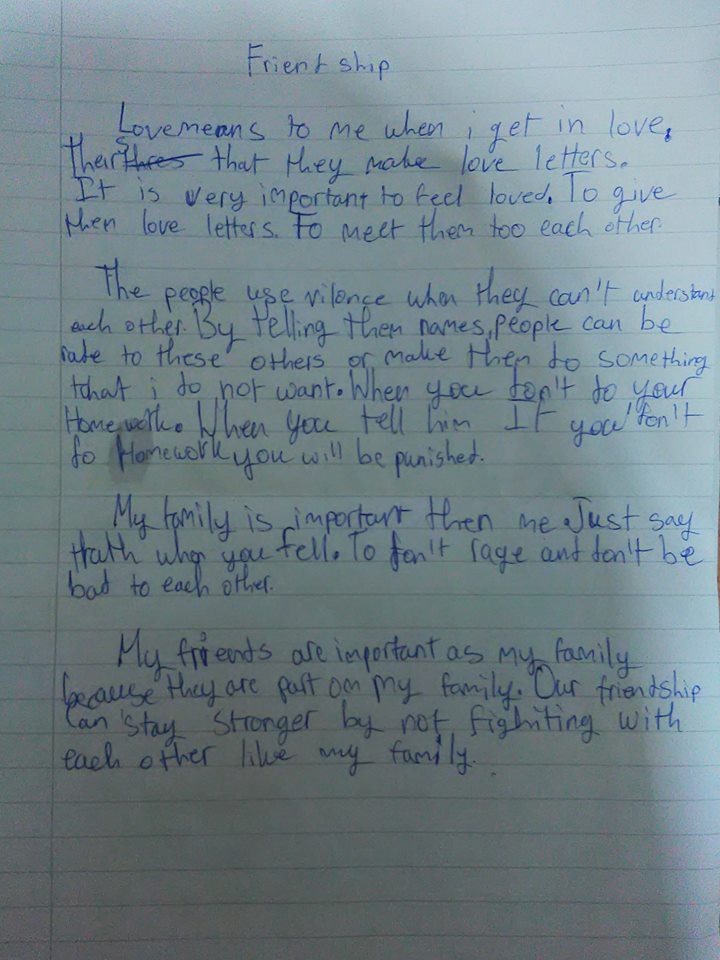 Frient ship
Love means to me when i get in love,
their that they make love letters.
It is very important to feel loved. To give
then love letters. To meet them too each other.
The people use vilonce when they can't understant
each other. By telling then names, people can be
rute to these others or make then to something
that i do not want. When you don't do your
Home work. When you tell him If you don't
do Homework you will be punished.
My family is important then me Just say
thath when you fell. To don't rage and don't be
bad to each other.
My friends are important as my family
because they are part on my family. Our friendship
can stay stronger by not fighiting with
each other like my family.